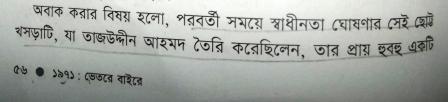 অবাক করার বিষয় হলো, পরবর্তী সময়ে স্বাধীনতা ঘোষণার সেই ছোট
খসড়াটি, যা তাজউদ্দীন আহমদ তৈরি করেছিলেন, তার প্রায় হুবহু একটি
৫৬ ● ১৯৭১ : ভেতরে বাইরে